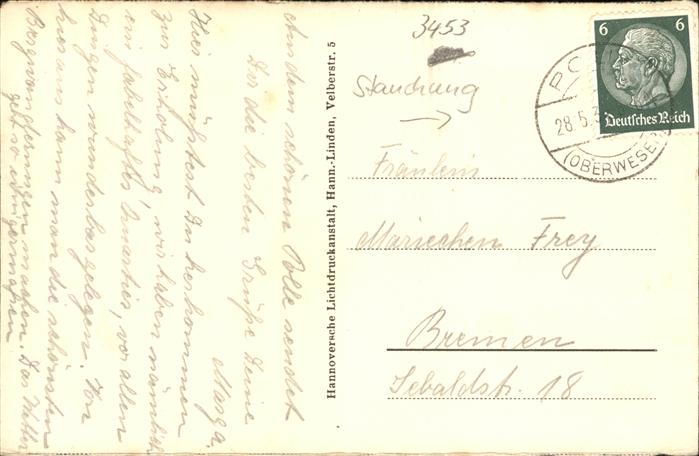 3453
Standung
6 6
Deutsches Reich
PO
28.5.3
(OBERWESER)
Fräulein
Mariechen Frey
Bremen
Sebaldstr. 18
Hannoversche Lichtdruckanstalt, Hann.-Linden, Velberstr. 5
Aus dem schönen Polle sendet
Dir die besten Grüße Deine
Marga.
Hier müßtest Du herkommen
zur Erholung, wir haben nämlich
ein fabelhaftes Quartier, vor allen
Dingen wunderbar gelegen. Von
hier aus kann man die schönsten
Bergwanderungen machen. Das Wetter
geht so einigermaßen.